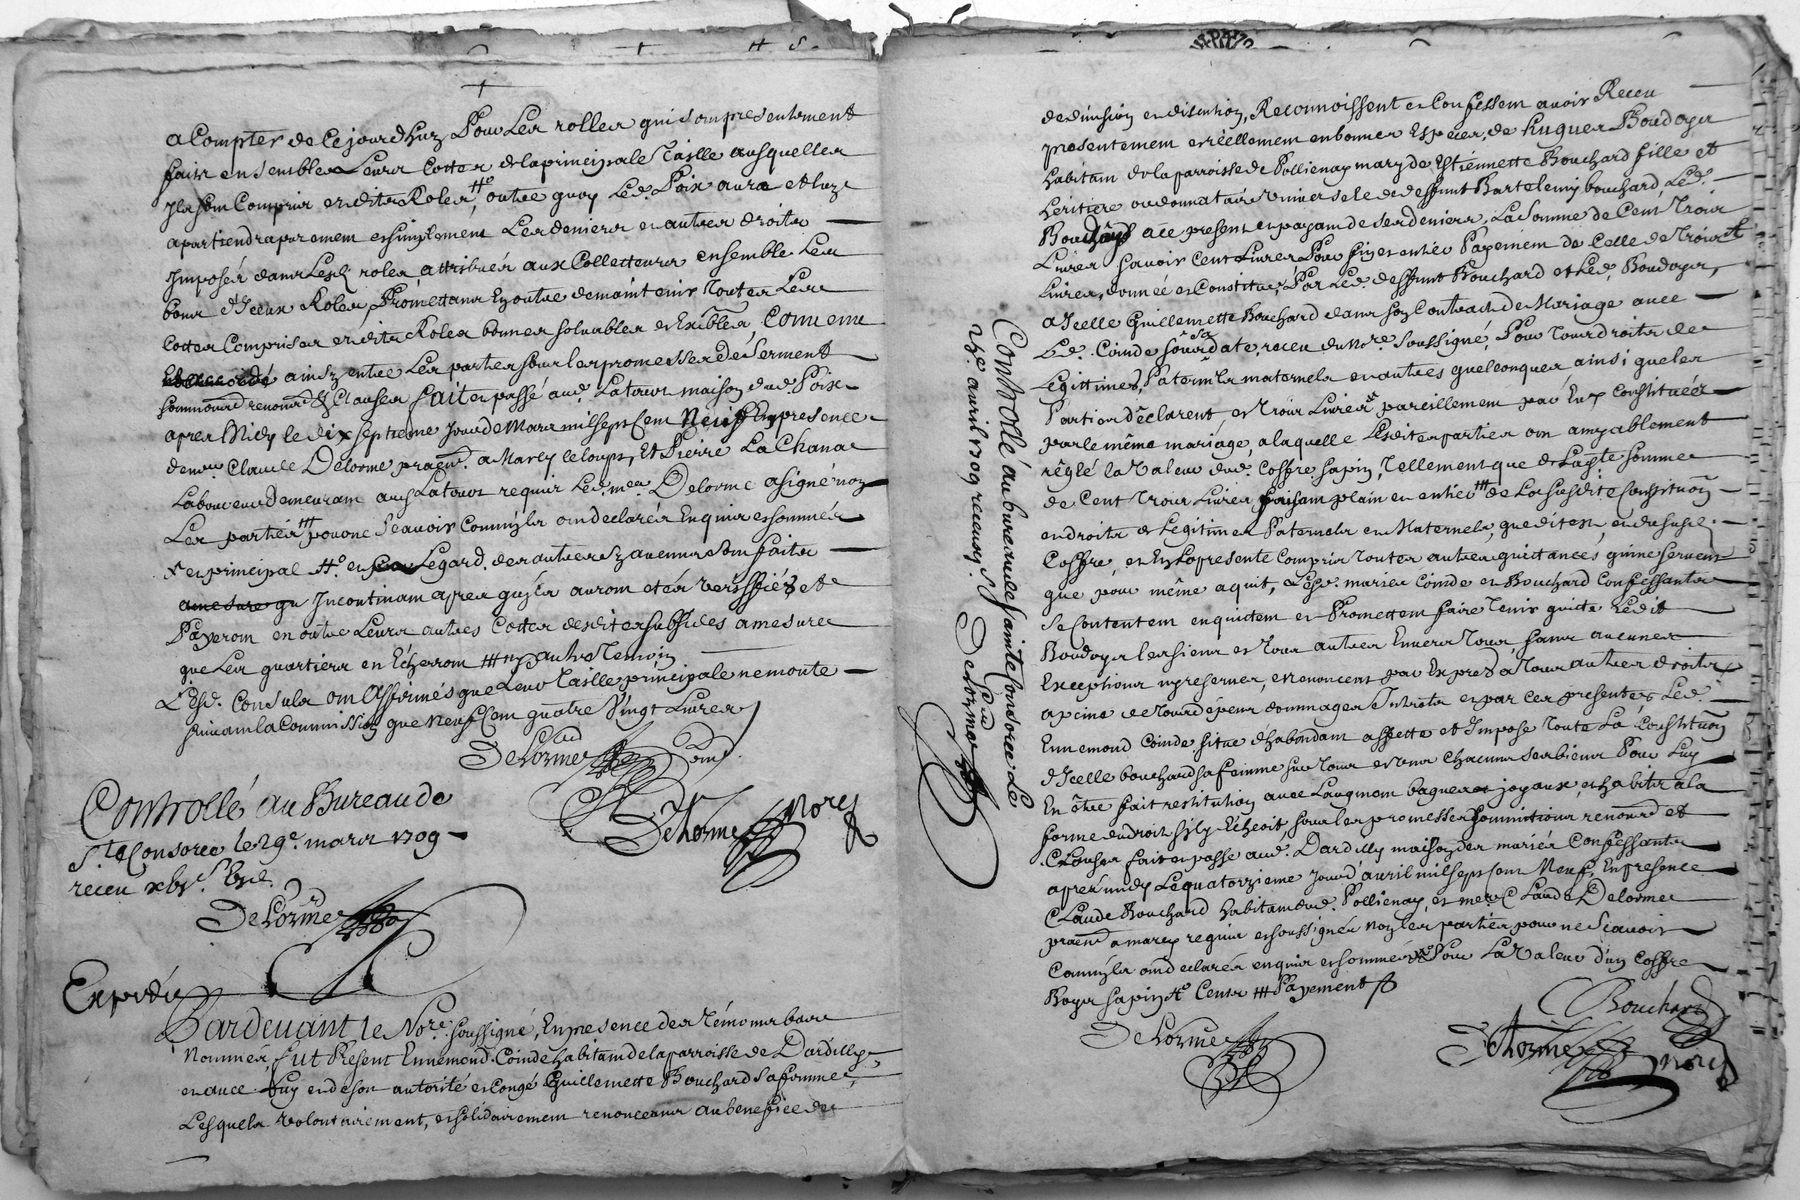 a Compter de Ce jourdhuy Pour Les rolles qui sont presentement
faits ensembles Leurs Cottes de la principale Taille ausquelles
Ils sont Compris esdits Roles, outre quoy Led. Poix aura et luy
apartiendra purement et simplement Les deniers et autres droits
Imposés dans Lesd. roles attribués aux Collecteurs ensemble Les
bons d'Iceux Roles, Promettans En outre de maintenir Toutes Les
Cottes Comprises esdits Roles bonnes solvables et Exibles, Comme
ainsy entre Les parties sous les promesses de Serment
soumissions renonon. & Clauses fait et passé aud. La tour maison dud. Poix
apres Midy le dix septieme Jour de Mars mil sept Cent Neuf En presence
de me. Claude Delorme pracn. a Marcy le loup, Et Pierre La Chana
Laboureur demeurant aud La tour requis Led. me. Delorme a signé non
Les parties pour ne Scavoir Comm'ils ont declarés Enquis et sommés
et principal et Legard. des autres
qu Incontinant apres qu'ils auront etés veriffiés et
Payeront en outre Leurs autres Cottes desdites subsides a mesure
que Les quartiers en Echerront autre Temoin
L'esd. Consuls ont affirmés que Leur Taille principale ne monte
suivant la Commission que neuf Cent quatre Vingt Livres
DeLorme
DeLorme nore
Controllé au Bureau de
Ste Consorce le 29e. mars 1709
receu
DeLorme
Expedié
Pardevant le Nore. soussigné, En presence des Témoins bas
Nommés, fut Présent Ennemond Coinde habitant de la parroisse de Dardilly
et avec Luy et de son autorité et Congé Guillemette Bouchard sa femme,
Lesquels volontairement, et solidairement renonceans au benefice de
de division et discution, Reconnoissent et Confessent avoir Receu
presentement et réellement en bonnes Especes, de Hugues Boudoyer
habitant de la parroisse de Pollienay mary de Estiennette Bouchard fille et
heritiere ou donnataire universele de deffunt Bartelemy bouchard, Led.
a ce present et payant de ses deniers, La Somme de Cent Trois
Livres Savoir Cent Livres Pour fin et entier Payement de Celle de Trois Ct
Livres, donnée et Constituée Par Led. deffunt Bouchard et Led. Boudoyer,
a Icelle Guillemette Bouchard dans son Contract de Mariage avec
Led. Coinde sous sa date, receu du Nore. soussigné, Pour Tous droits de
Legittimes, Paternels maternels et autres quelconques ainsi que les
Parties déclarent, et Trois Livres pareillement par Eux Constituées
par le même mariage, a laquelle Lesdites parties ont amyablement
réglé la Valeur dud. Coffre sapin, Tellement que de Ladte somme
de Cent Trois Livres faisant plain et entier de La susdite Constituon
en droits de Legitimes Paternels et Maternels, que dit est, et du susd.
Coffre, et En La presente Compris Toutes autres quittances qui ne servent
que pour même aquit, Lesd. mariés Coinde et Bouchard Confessants
se Contentent en quittent et Promettent faire Tenir quitte Ledit
Boudoyer les siens et Tous autres Envers Tous, sans aucunes
Exceptions ny reserves, et renoncent par Exprès a Tous autres droits
a peine de Tous dépens dommages Interets et par Ces presentes Led.
Ennemond Coinde situe d'habondant assette et Impose Toute La Constituon
d'Icelle bouchard sa femme sur Tous et uns Chacuns ses biens Pour Luy
En être fait restitution avec Laugment bagues et joyaux, et habits a la
forme du droit s'il y Echeoit, sous les promesses soumissions renonon. et
Clauses fait et passe aud. Dardilly maison des mariés Confessants
aprés midy Le quatorzieme Jour d'avril mil sept Cent Neuf, En presence
Claude Bouchard habitant dud. Pollienay, et me Claude Delorme
pracn. a marcy requis et soussignés non les parties pour ne Scavoir
Comm'ils ont declarés enquis et sommés Pour La Valeur d'un Coffre
Boys sapin Cents Payement
DeLorme
Bouchard
DeLorme nore
Controllé au bureau de Sainte Consorce Le
25e. avril 1709 receu
DeLorme